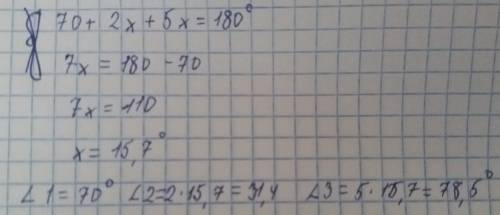 70 + 2x + 5x = 180°
7x = 180 - 70
7x = 110
x = 15,7°
∠1 = 70° ∠2 = 2·15,7 = 31,4 ∠3 = 5·15,7 = 78,5°